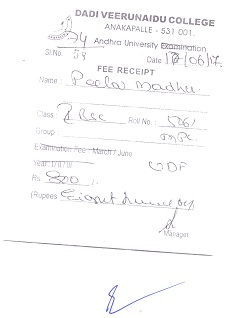 DADI VEERUNAIDU COLLEGE
ANAKAPALLE - 531 001.
Andhra University Examination
Sl.No. 59 Date 17/06/17
FEE RECEIPT
Name : Peela Madhu
Class : Roll No. :
Group : MPC
Examination Fee : March / June
Year : I/II/III
Rs. 800/-
(Rupees Eight hundred
Manager